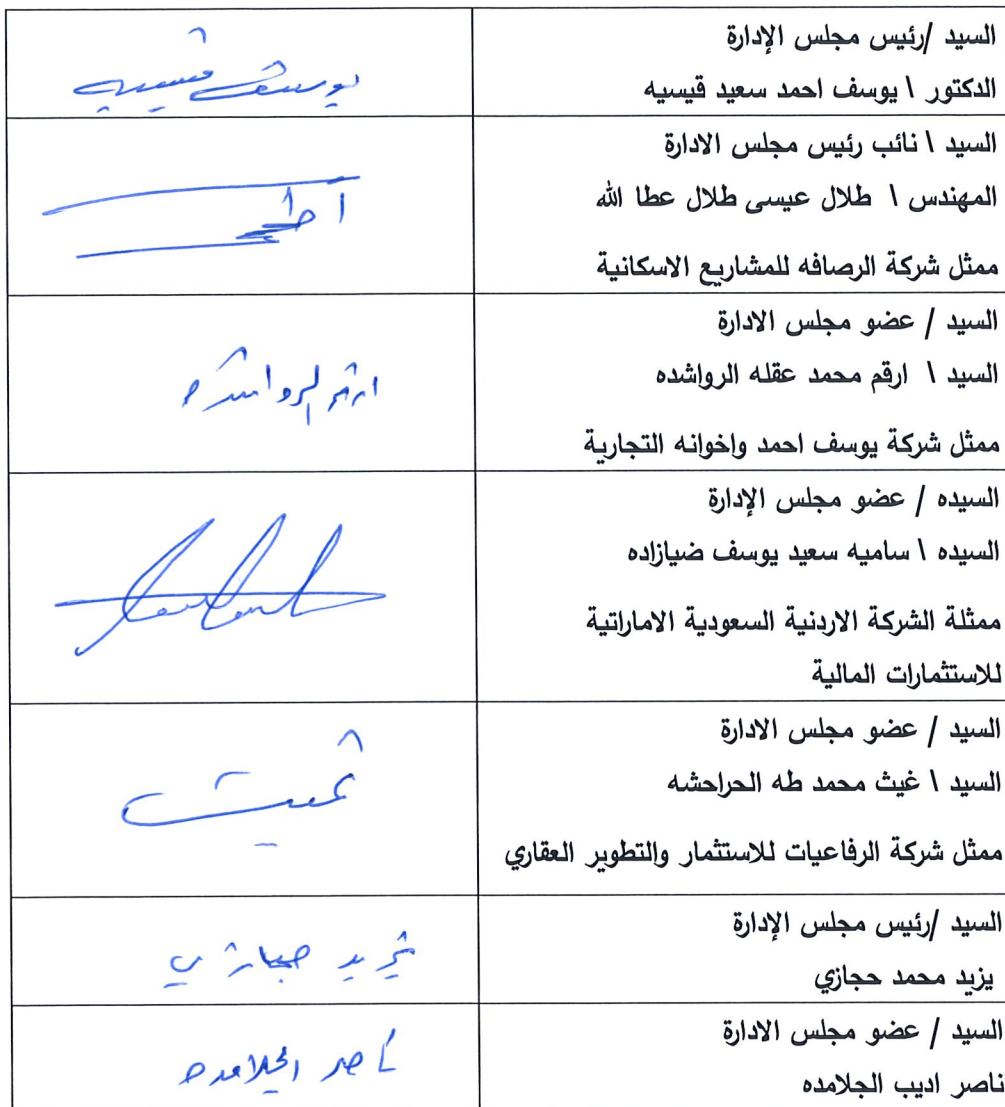 السيد /رئيس مجلس الإدارة
الدكتور \ يوسف احمد سعيد قيسيه
يوسف قيسيه
السيد \ نائب رئيس مجلس الادارة
المهندس \ طلال عيسى طلال عطا الله
ممثل شركة الرصافه للمشاريع الاسكانية
السيد / عضو مجلس الادارة
السيد \ ارقم محمد عقله الرواشده
ممثل شركة يوسف احمد واخوانه التجارية
ارقم الرواشده
السيده / عضو مجلس الإدارة
السيده \ ساميه سعيد يوسف ضيازاده
ممثلة الشركة الاردنية السعودية الاماراتية
للاستثمارات المالية
السيد / عضو مجلس الادارة
السيد \ غيث محمد طه الحراحشه
ممثل شركة الرفاعيات للاستثمار والتطوير العقاري
غيث
السيد /رئيس مجلس الإدارة
يزيد محمد حجازي
يزيد حجازي
السيد / عضو مجلس الادارة
ناصر اديب الجلامده
ناصر الجلامده